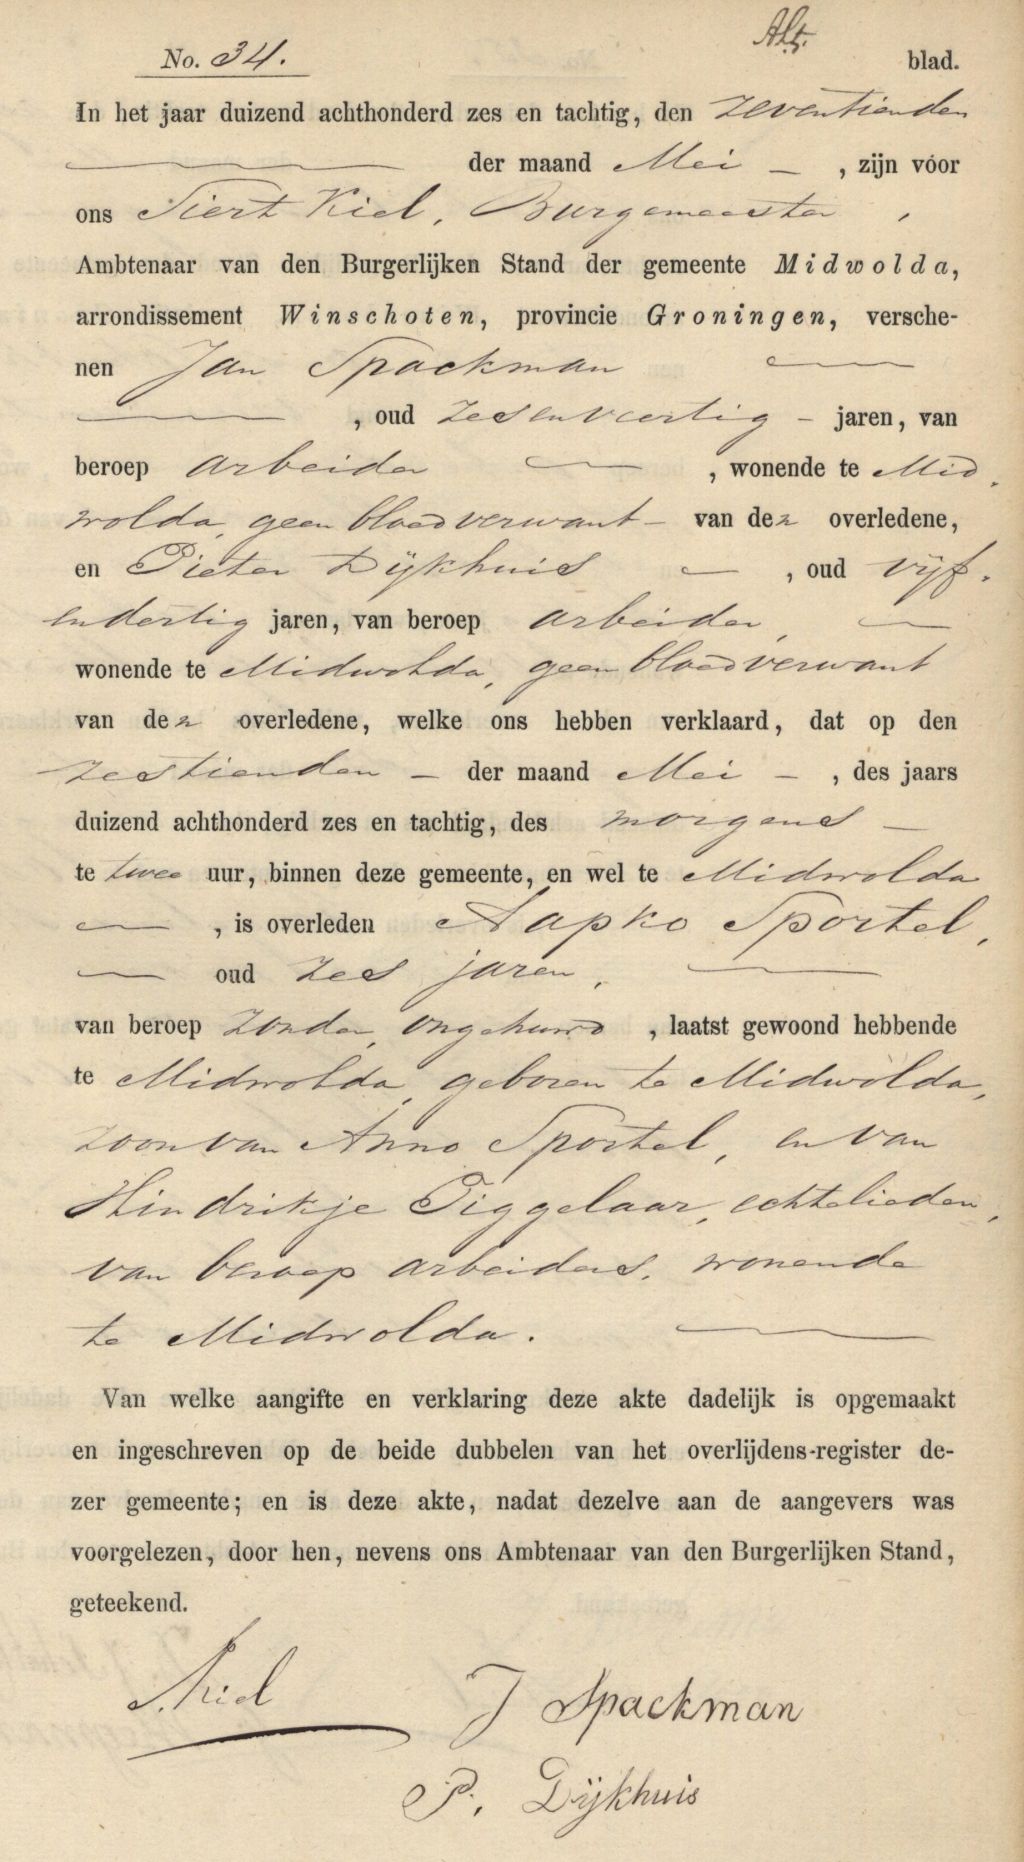 No. 34. blad.
In het jaar duizend achthonderd zes en tachtig, den zeventienden
der maand Mei — , zijn vóor
ons Siert Kiel, Burgemeester ,
Ambtenaar van den Burgerlijken Stand der gemeente Midwolda,
arrondissement Winschoten, provincie Groningen, versche-
nen Jan Spackman
, oud zesenveertig - jaren, van
beroep arbeider , wonende te Mid-
wolda, geen bloedverwant - van den overledene,
en Pieter Dijkhuis , oud vijf-
endertig jaren, van beroep arbeider,
wonende te Midwolda, geen bloedverwant
van den overledene, welke ons hebben verklaard, dat op den
zestienden - der maand Mei - , des jaars
duizend achthonderd zes en tachtig, des morgens -
te twee uur, binnen deze gemeente, en wel te Midwolda
, is overleden Aapko Sportel,
oud zes jaren,
van beroep zonder, ongehuwd , laatst gewoond hebbende
te Midwolda, geboren te Midwolda,
zoon van Anno Sportel, en van
Hindrikje Tiggelaar, echtelieden,
van beroep arbeiders, wonende
te Midwolda.
Van welke aangifte en verklaring deze akte dadelijk is opgemaakt
en ingeschreven op de beide dubbelen van het overlijdens-register de-
zer gemeente; en is deze akte, nadat dezelve aan de aangevers was
voorgelezen, door hen, nevens ons Ambtenaar van den Burgerlijken Stand,
geteekend.
S. Kiel J Spackman
P. Dijkhuis